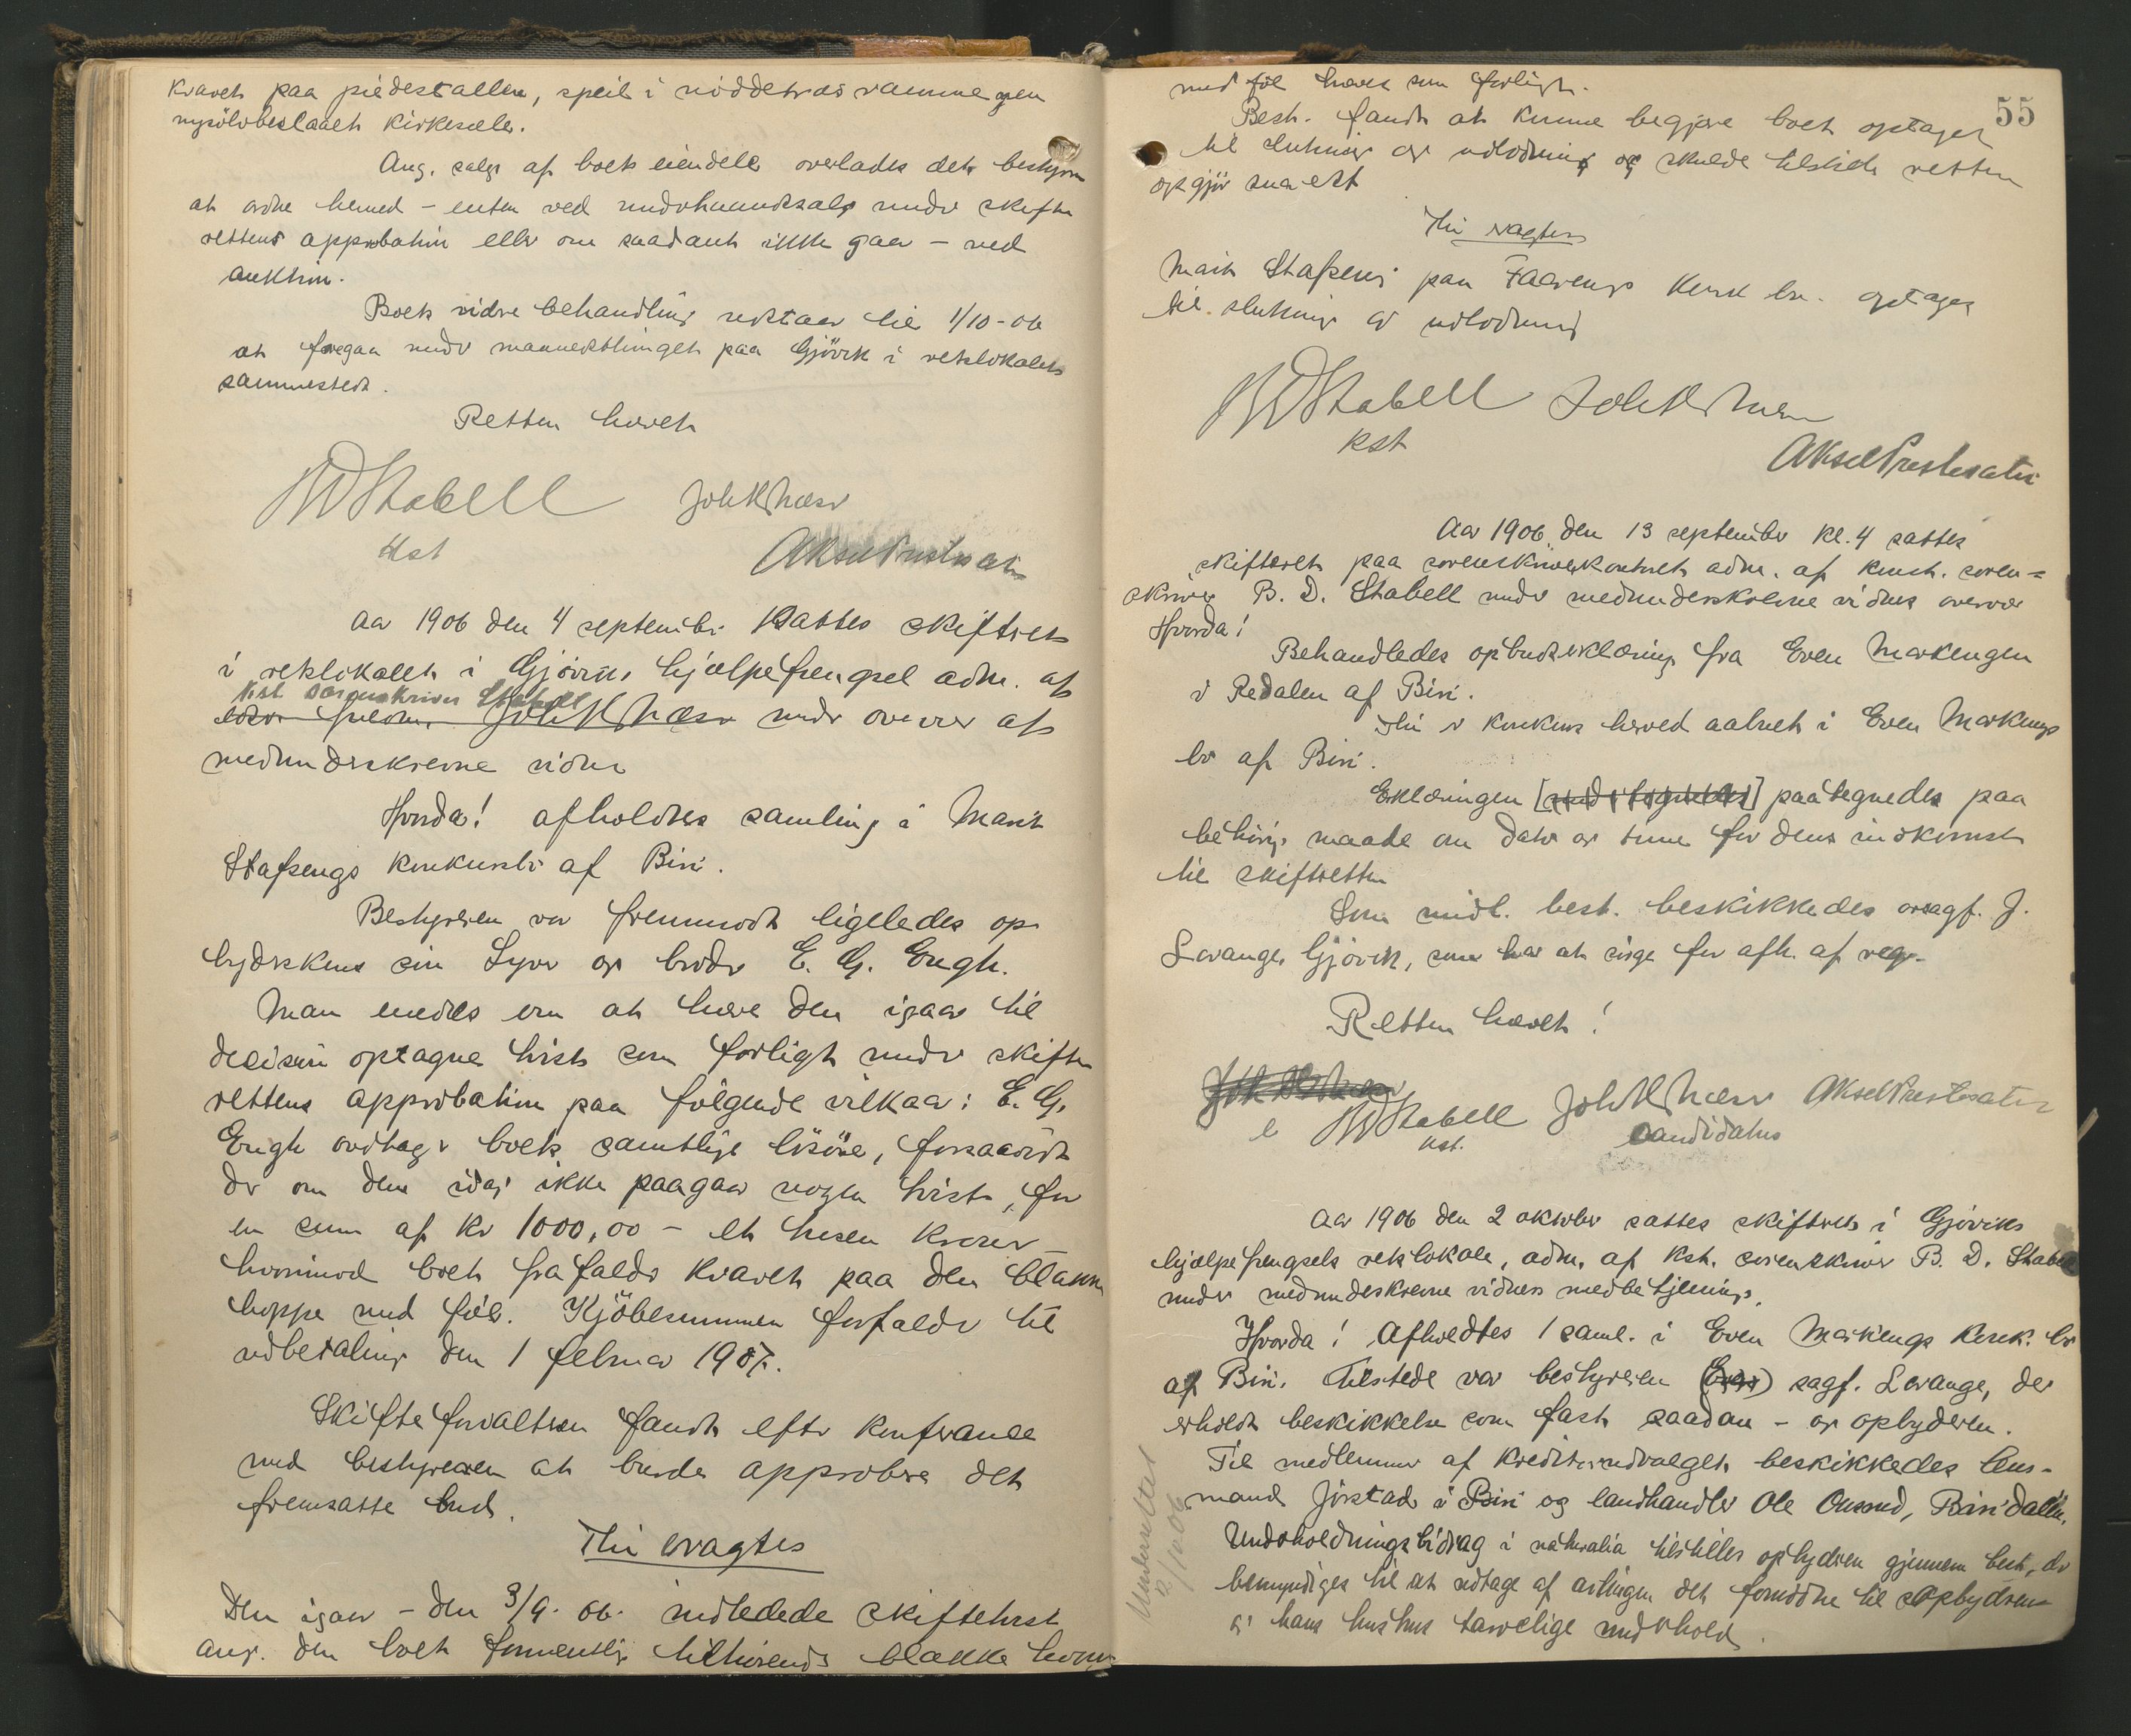 kravet paa piedestallen, speil i nöddetræs ramme og en
nysölvbeslaaet kirkesæle.
Ang. salg af boets eiendele overlades det bestyren
at ordne hermed - enten ved underhaandssalg under skifte
rettens approbation eller om saadant ikke gaar - ved
auktion.
Boets videre behandling udstaar til 1/10-06
at foregaa under mannestthinget paa Gjövik i retslokalet
sammesteds.
Retten hævet
BDStabell Joh K Næss
kst Aksel Prestesæter
Aar 1906 den 4 september sattes skifteret
i retslokalet i Gjöviks hjælpefængsel adm. af
kst sorenskriver Stabell
edsv. fuldm. Joh K Næss under overvær af
medunderskrevne vidne
Hvorda! afholdtes samling i Marit
Stafsengs konkursbo af Biri.
Bestyreren var fremmødt ligeledes op
bydersken sin Syver og broder E. G. Engh.
Man enedes om at hæve den igaar til
decision optagne tvist som forligt under skifte
rettens approbation paa fölgende vilkaar: E. G.
Engh overtager boets samtlige lösöre, forsaavidt
der om dem idag ikke paagaar nogen tvist, for
en sum af kr 1000,00 - et tusen kroner -
hvorimod boet frafalder kravet paa den blakke
hoppe med föl. Kjöbesummen forfalder til
udbetaling den 1 februar 1907.
Skifteforvalteren fandt efter konferance
med bestyreren at burde approbere det
fremsatte bud.
Thi eragtes
Den igaar - den 3/9. 06. indledede skiftetvist
ang. den boet formentlig tilhörende blakke hoppe
55
med föl hæves som forligt.
Best. fandt at kunne begjære boet optaget
til slutning og udlodning og skulde tilstille retten
opgjör snarest
Thi eragtes
Marit Stafseng paa Faavengs konk bo. optages
til slutning og udlodning
BDStabell Joh K Næss
kst
Aksel Prestesæter
Aar 1906 den 13 september kl. 4 sattes
skifteret paa sorenskriverkontoret adm. af konst. soren=
skriver B. D. Stabell under medunderskrevne vidnes overvær
Hvorda!
Behandledes opbudserklæring fra Even Markengen
i Redalen af Biri.
Thi er konkurs herved aabnet i Even Markengs
bo af Biri.
Erklæringen paategnedes paa
behörig maade om dato og time for dens indkomst
til skifteretten
Som midl. best. beskikkedes orsagf. J.
Lovange, Gjövik, som har at sörge for afh. af reg.
Retten hævet!
BDStabell Joh K Næss Aksel Prestesæter
kst. candidatus
Aar 1906 den 2 oktober sattes skifteret i Gjöviks
hjælpefængsels retslokale, adm. af kst. sorenskriver B. D. Stabell
under medunderskrevne vidners medbetjening.
Hvorda! Afholdtes 1 saml. i Even Markengs konk. bo
af Biri. Tilstede var bestyreren sagf. Lovange, der
erholdt beskikkelse som fast saadan - og opbyderen.
Til medlemmer af kreditorudvalget beskikkedes lens-
mand Jörstad i Biri og landhandler Ole Onsrud, Biridalen.
Underholdningsbidrag i naturalia tilstilles opbyderen gjennem best, der
bemyndiges til at udtage af avlingen det fornödne til opbyderens
og hans hustrus tarvelige underhold.
Underrettet
2/10 06